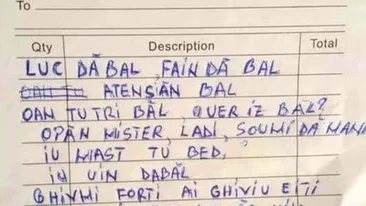 To
Qty Description Total
LUC DĂ BAL, FAIN DĂ BAL
ATENSĂN BAL
OAN TU TRI BĂL, QUER IZ BAL?
OPĂN MISTER, LADI, SOUMI DĂ MANI
IU MAST TU BED,
IU UIN DABĂL
GHIVMI FORTI AI GHIVIU EITI